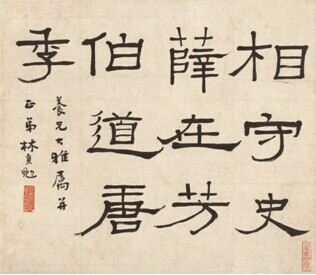 相守史
薛在芳
伯道唐
季
養兄大雅屬并
正 弟林直勉